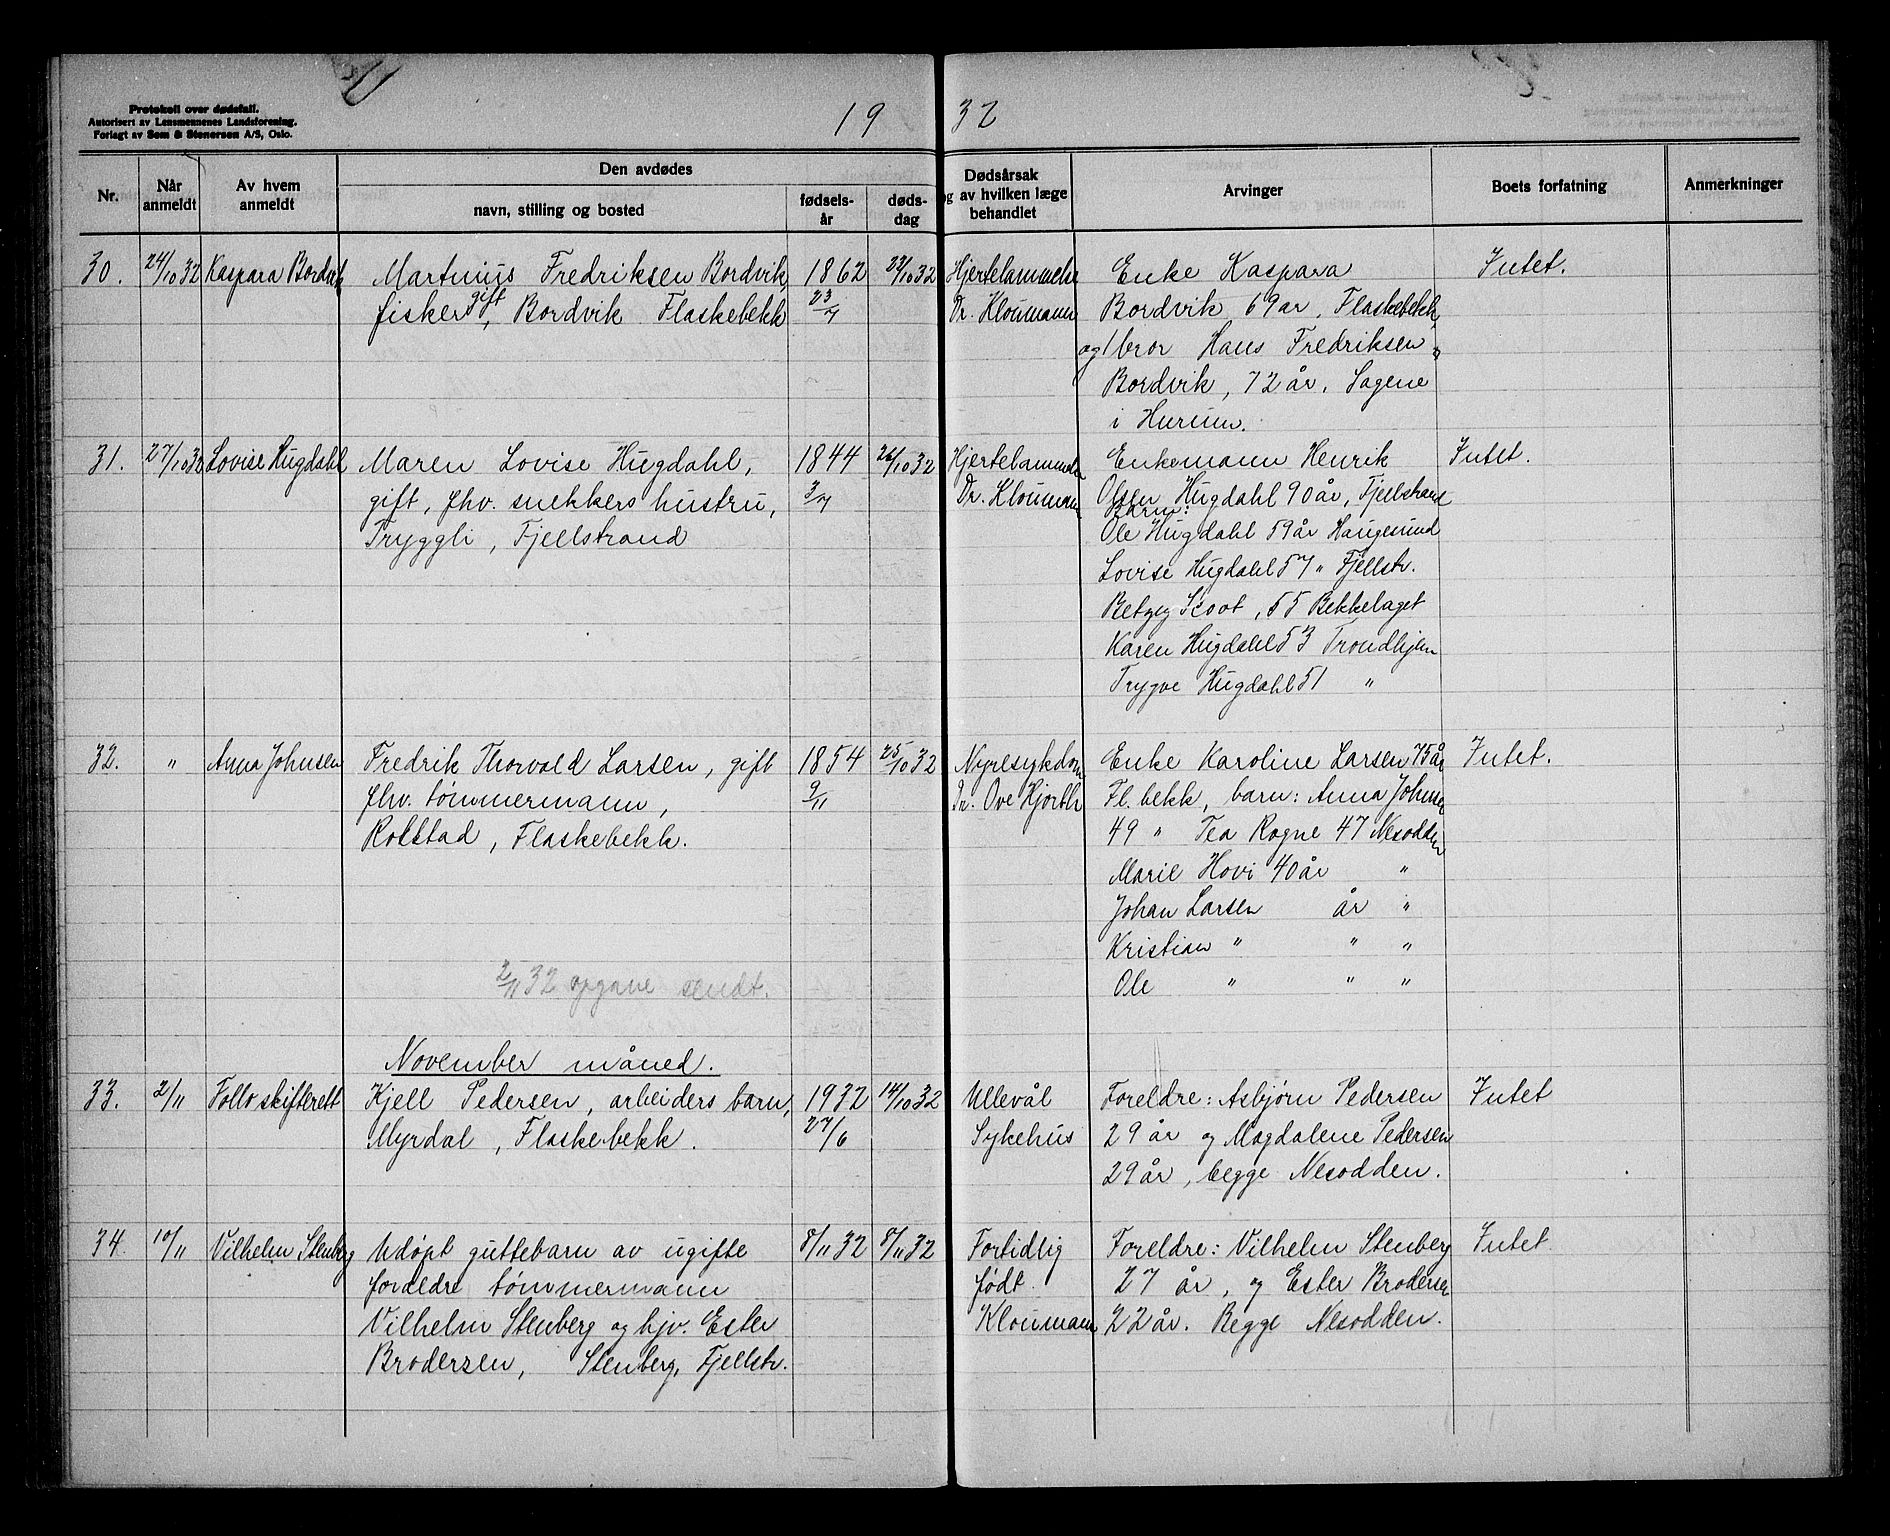 Protokoll over dødsfall.
Autorisert av Lensmennenes Landsforening.
Forlagt av Sem & Stenersen A/S, Oslo.
19 32
Nr.
Når anmeldt
Av hvem anmeldt
Den avdødes
navn, stilling og bosted
fødsels-år
døds-dag
Dødsårsak
og av hvilken læge
behandlet
Arvinger
Boets forfatning
Anmerkninger
30. 24/10 32 Kaspara Bordvik Martinius Fredriksen Bordvik, 1862 /10 32 Hjertelammelse Enke Kaspara Intet.
fisker gift, Bordvik Flaskebekk 23/7 Dr. Kloumann Bordvik 69 år, Flaskebekk,
og bror Hans Fredriksen
Bordvik, 72 år, Sagene
i Hurum.
31. 27/10 32 Lovise Hugdahl Maren Lovise Hugdahl, 1844 26/10 32 Hjertelammelse Enkemann Henrik Intet.
gift, fhv. snekkers hustru, 3/7 Dr. Kloumann Olsen Hugdahl 90 år, Fjellstrand
Barn:
Tryggli, Fjellstrand Ole Hugdahl 59 år Haugesund
Lovise Hugdahl 57 " Fjellstr.
Betzy Scoot, 55 Bekkelaget
Karen Hugdahl 53 Trondhjem
Trygve Hugdahl 51 "
32. " Anna Johnsen Fredrik Thorvald Larsen, gift 1854 25/10 32 Nyresykdom Enke Karoline Larsen 75 år Intet.
fhv. tømmermann, 9/11 Dr. Ove Hjorth Fl.bekk, barn: Anna Johnsen
Rolstad, Flaskebekk. 49 " Tea Rogne 47 Nesodden
Marie Hovi 40 år "
Johan Larsen år "
Kristian " " "
2/11 32 opgave sendt. Ole " " "
November måned.
33. 2/11 Follo skifterett Kjell Pedersen, arbeiders barn, 1932 14/10 32 Ullevål Foreldre: Asbjørn Pedersen Intet
Myrdal, Flaskebekk. 27/6 Sykehus 29 år og Magdalene Pedersen
29 år, begge Nesodden.
34. 10/11 Vilhelm Stenberg Udøpt guttebarn av ugifte 8/11 32 8/11 32 Fortidlig Foreldre: Vilhelm Stenberg Intet.
foreldre tømmermann født. 27 år, og Ester Brodersen
Vilhelm Stenberg og hjv. Ester Kloumann 22 år. Begge Nesodden.
Brodersen, Stenberg, Fjellstr.